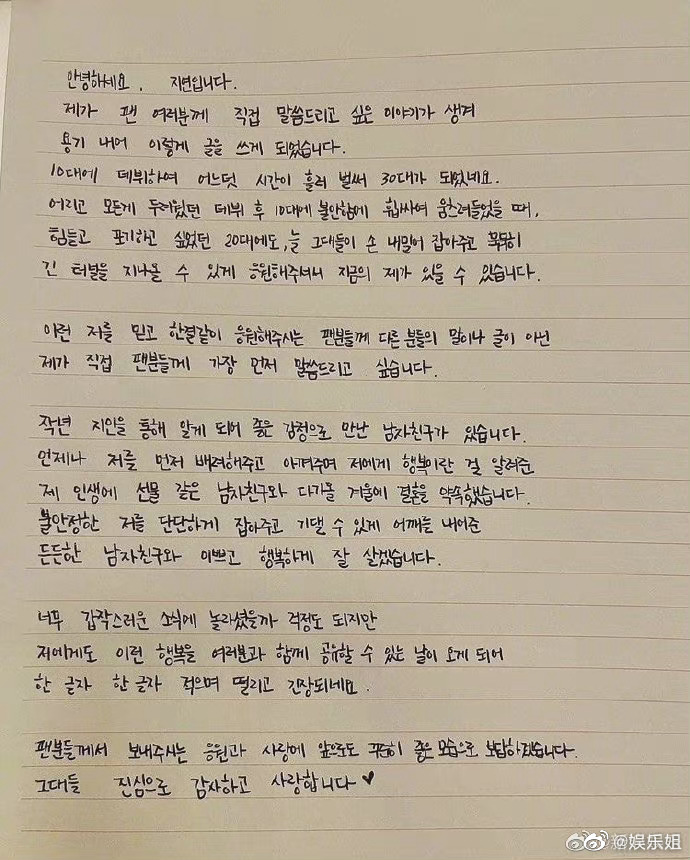 안녕하세요. 지연입니다.
제가 팬 여러분께 직접 말씀드리고 싶은 이야기가 생겨
용기 내어 이렇게 글을 쓰게 되었습니다.
10대에 데뷔하여 어느덧 시간이 흘러 벌써 30대가 되었네요.
어리고 모든게 두려웠던 데뷔 후 10대에 불안함에 휩싸여 움츠려들었을 때,
힘들고 포기하고 싶었던 20대에도, 늘 그대들이 손 내밀어 잡아주고 묵묵히
긴 터널을 지나올 수 있게 응원해주셔서 지금의 제가 있을 수 있습니다.
이런 저를 믿고 한결같이 응원해주시는 팬분들께 다른 분들의 말이나 글이 아닌
제가 직접 팬분들께 가장 먼저 말씀드리고 싶습니다.
작년 지인을 통해 알게 되어 좋은 감정으로 만난 남자친구가 있습니다.
언제나 저를 먼저 배려해주고 아껴주며 저에게 행복이란 걸 알려준
제 인생에 선물 같은 남자친구와 다가올 겨울에 결혼을 약속했습니다.
불안정한 저를 단단하게 잡아주고 기댈 수 있게 어깨를 내어준
든든한 남자친구와 이쁘고 행복하게 잘 살겠습니다.
너무 갑작스러운 소식에 놀라셨을까 걱정도 되지만
저에게도 이런 행복을 여러분과 함께 공유할 수 있는 날이 오게 되어
한 글자 한 글자 적으며 떨리고 긴장되네요.
팬분들께서 보내주시는 응원과 사랑에 앞으로도 꾸준히 좋은 모습으로 보답하겠습니다.
그대들 진심으로 감사하고 사랑합니다♥
@娱乐姐